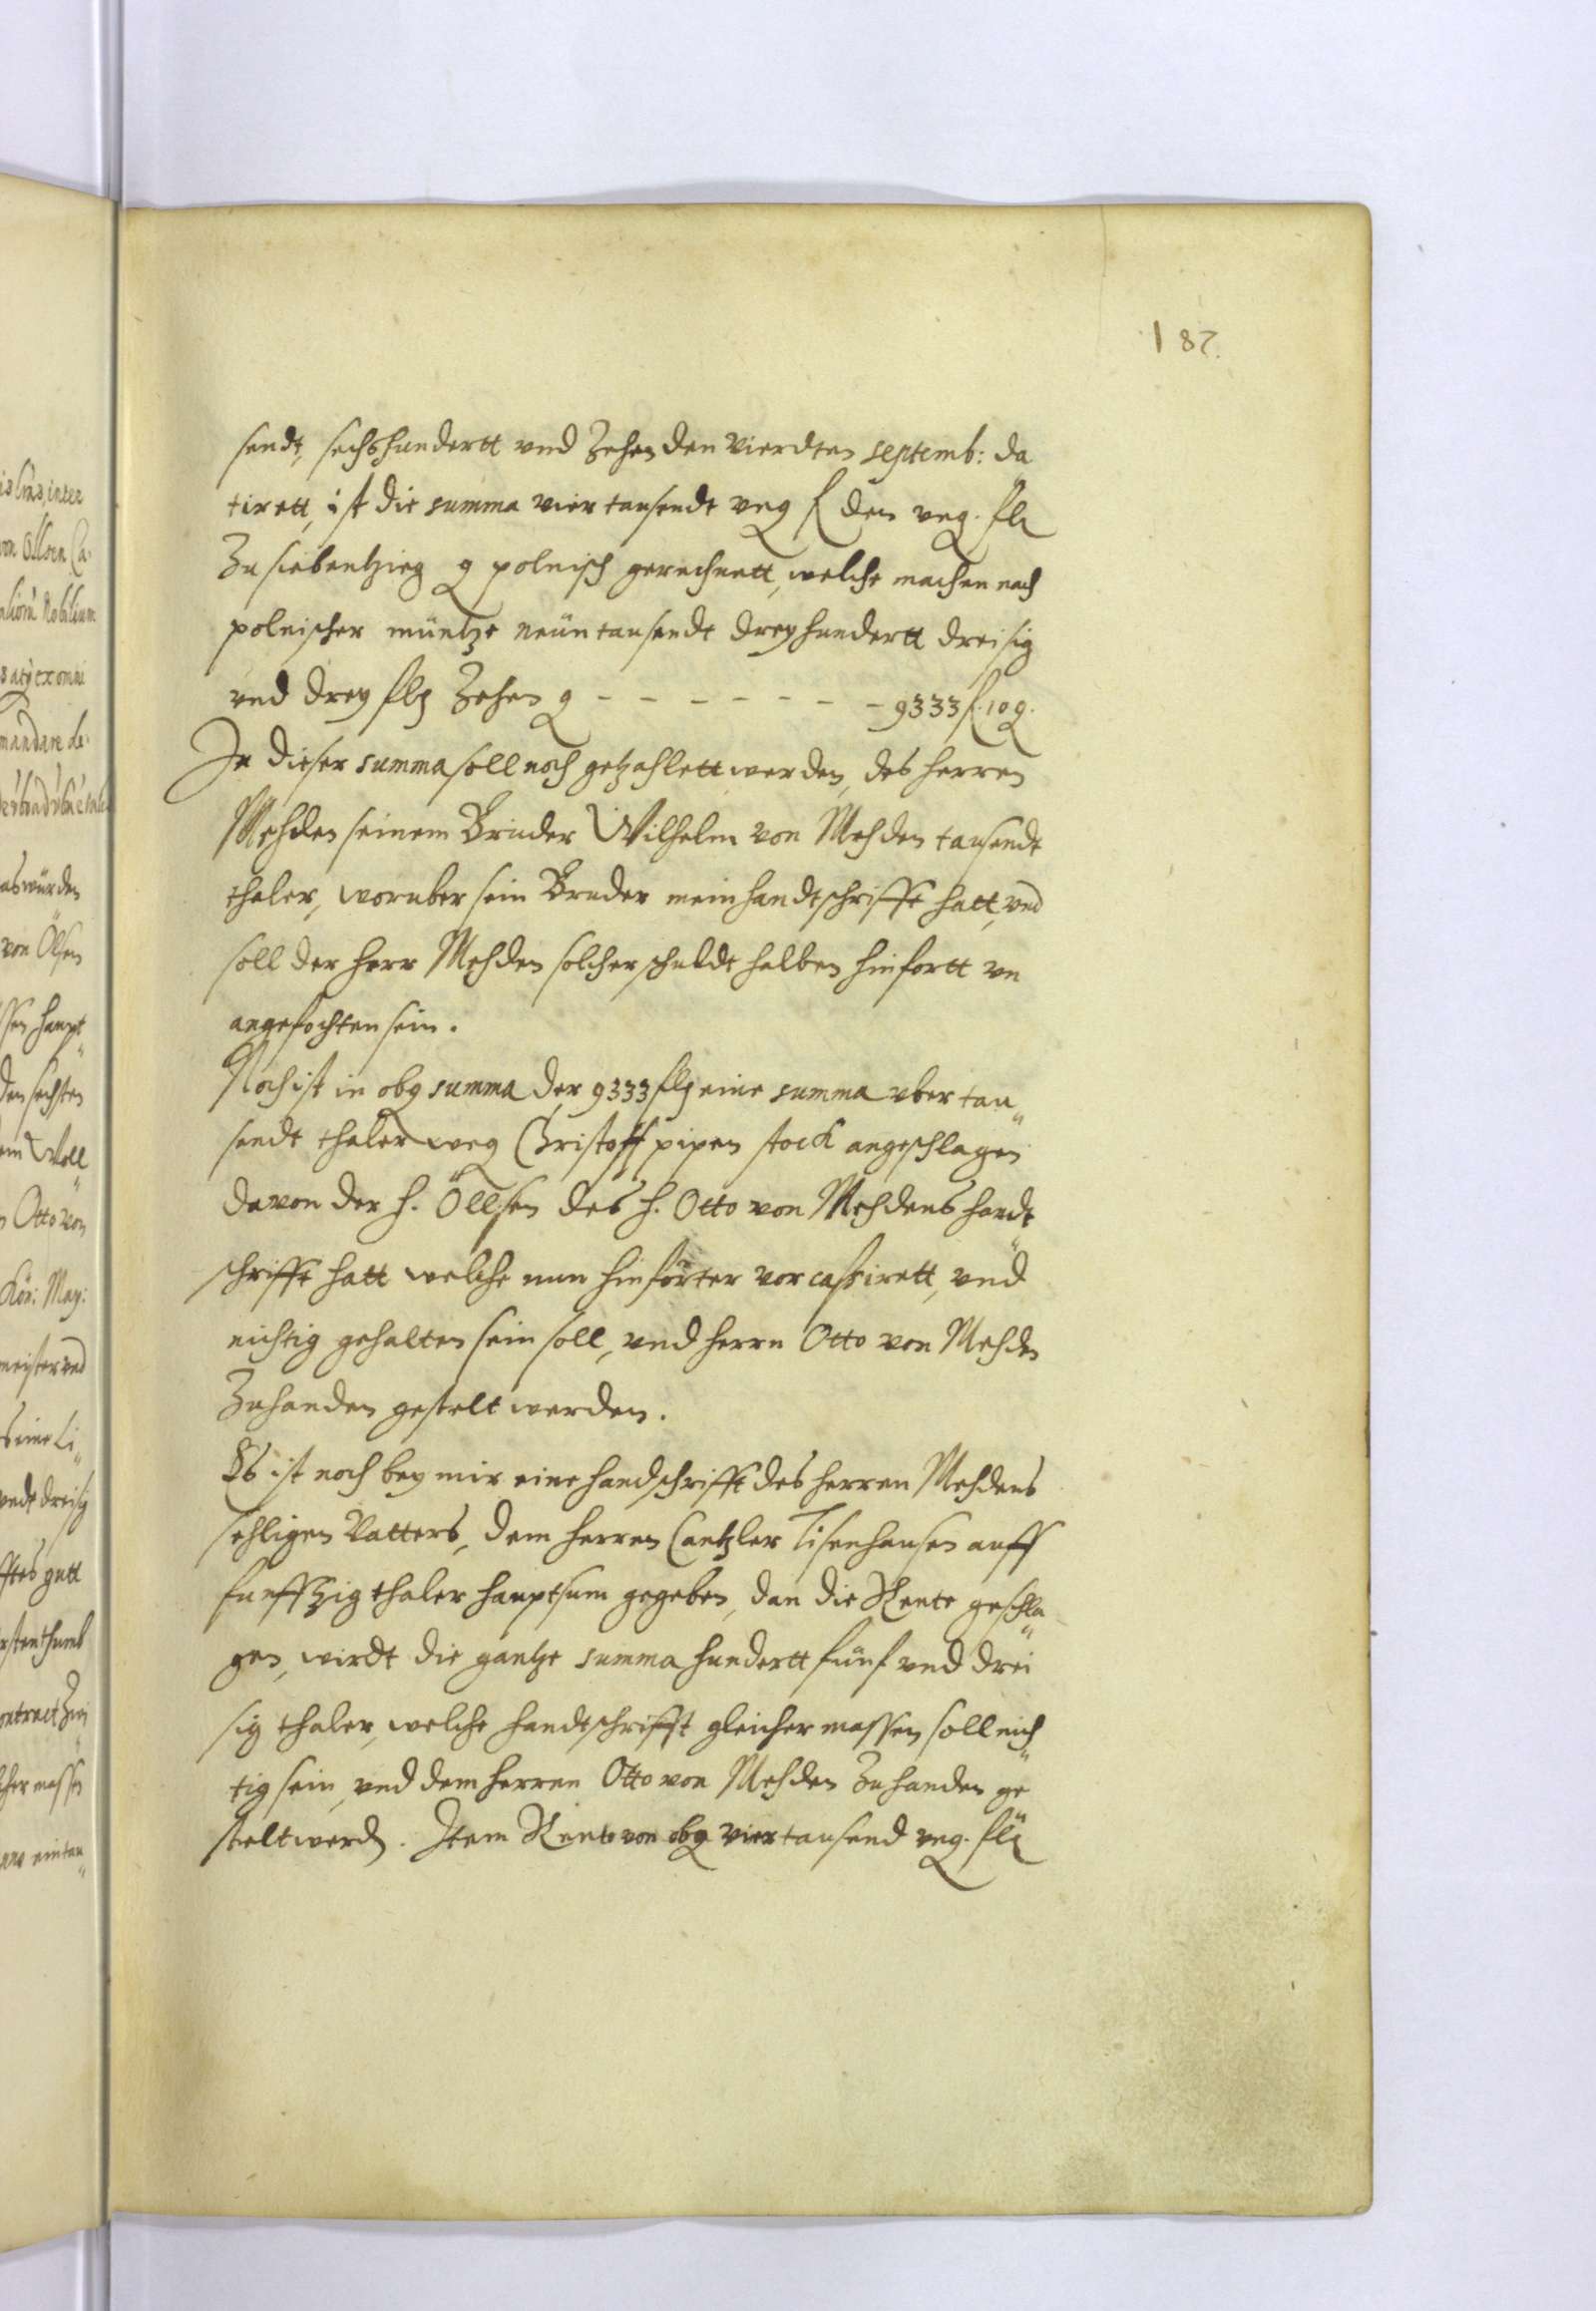 187.
sendt, sechshundertt vnd Zehen den vierdten septemb: da
tirett, ist die summa vier tausendt vng f den vng. fl
Zu siebentzieg g polnisch gerechnett, welche machen nach
polnischer müntze neüntausendt dreyhundertt dreisig
vnd drey flp Zehen g - - - - - - - 9333 f. 10 g.
In dieser summa soll noch getzahlett werden, des herren
Mehden seinem Bruder Wilhelm von Mehden tausendt
thaler, woruber sein Bruder mein handtschrifft hatt, vnd
soll der Herr Mehden solcher schuldt halben hinfortt vn
angefochten sein.
Noch ist in obg summa der 9333 flp eine summa vber tau„
sendt thaler weg Christoff pipen stock angeschlagen
davon der H. Öllsen des H. Otto von Mehdens handt„
schrifft hatt welche nun hinförter vor cassirett, vnd
nichtig gehalten sein soll, vnd herrn Otto von Mehden
Zuhanden gestelt werden.
Es ist noch bey mir eine handschrifft des herren Mehdens
sehligen Vatters, dem herren Cantzler Tisenhausen auff
funfftzig thaler hauptsum gegeben, dan die Rente geschla„
gen, wirdt die gantze summa hundertt fünf vnd drei
sig thaler, welche handtschrifft gleicher massen soll nich„
tig sein, vnd dem herren Otto von Mehden Zuhanden ge„
stelt werdn. Item Rente von obg viertausend vng. fl
is Crās, inter
von Öllsen Ca„
Nobilium
ex omni
mandare de„
würden
von Ölsen
haupt„
den sechsten
Woll„
Otto von
Kön: May:
meister vnd
eine Li„
dreisig
gutt
Zwi„
massen
ein tau„